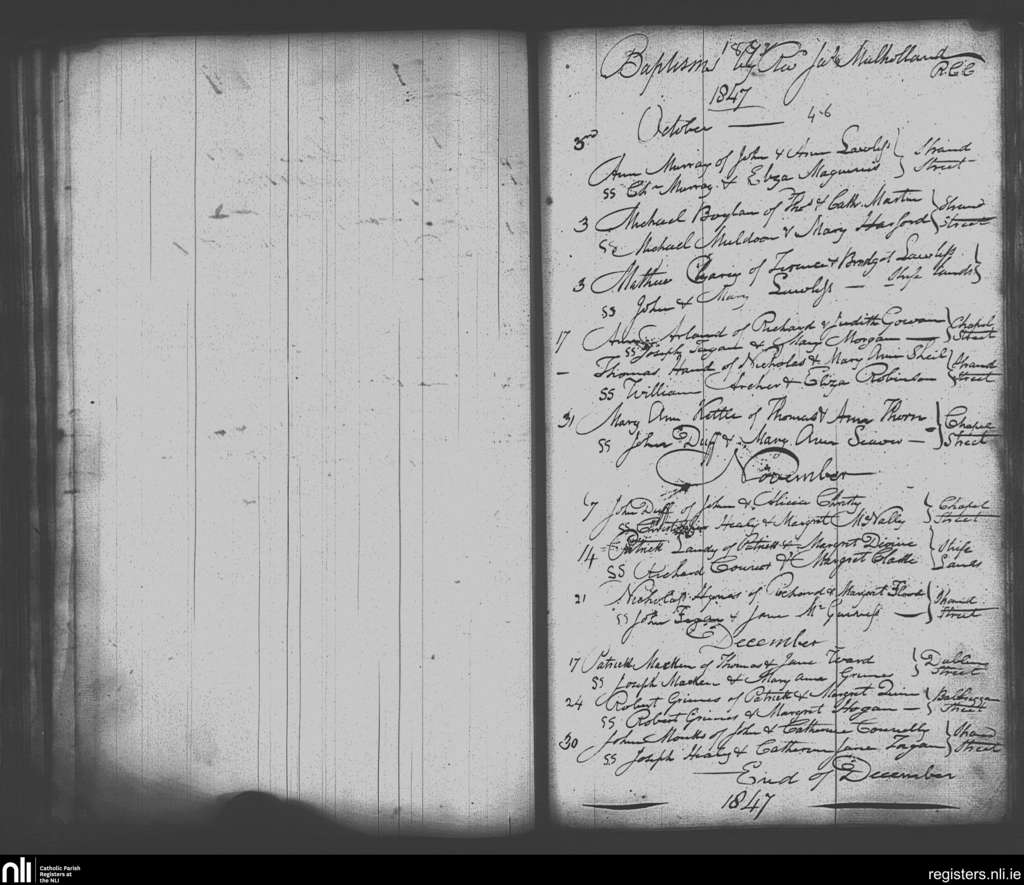 Baptisms by Rev Jas Mulholland
R.C.C
1847
October — 4-6
3rd
Ann Murray of John & Ann Lawless } Strand
SS Chr Murray & Eliza Maguiness } Street
3 Michael Boylan of Thos & Cath. Martin } Strand
SS Michael Muldoon & Mary Harford } Street
3 Mathew of Terence & Bridget Lawless
SS John & Mary Lawless — Strife Lands }
17 Ann Arland of Richard & Judith Gowan } Chapel
SS Joseph Fagan & Mary Morgan — } Street
— Thomas Hand of Nicholas & Mary Ann Sheil } Strand
SS William Archer & Eliza Robinson } Street
31 Mary Ann Kettle of Thomas & Ann Thorn } Chapel
SS John Duff & Mary Ann Seaver — } Street
November
7 John Duff of John & Alicia Christy } Chapel
SS Christopher Healy & Margret McNally } Street
14 Patrick Landy of Patrick & Margret Devine } Strife
SS Richard Connor & Margret Clarke } Lands
21 Nicholas Hynes of Richard & Margret Flood } Strand
SS John Fagan & Jane McGuiness — } Street
December
17 Patrick Macken of Thomas & Jane Ward } Dublin
SS Joseph Macken & Mary Anne Grimes } Street
24 Robert Grimes of Patrick & Margret Quinn } Balbriggan
SS Robert Grimes & Margret Hogan — } Street
30 John Monks of John & Catherine Connolly } Strand
SS Joseph Healy & Catherine Jane Fagan } Street
— End of December
1847
nli
Catholic Parish
Registers at
the NLI
registers.nli.ie